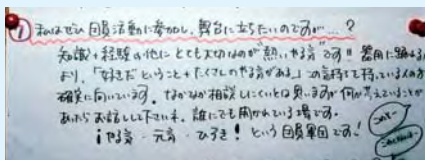 ① 私はぜひ団員活動に参加し、舞台に立ちたいのですが…?
知識や経験の他にとても大切なのが"熱いやる気"です!! 器用に踊るより、
「好きだということ・たくさんのやる気がある」この気持ちを持っている
確実に向いています。なかなか相談しにくいとは思いますが何か考えていることが
あったらお話しして下さいネ。誰にでも開かれている場です。
¡やる気・元気・ひらき! という団員